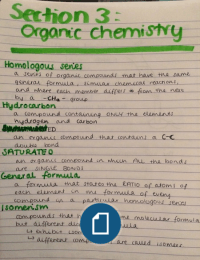 Section 3:
Organic chemistry
Homologous series
a series of organic compounds that have the same
general formula, similar chemical reactions,
and where each member differs from the next
by a -CH₂- group
Hydrocarbon
a compound containing ONLY the elements
hydrogen and carbon
an organic compound that contains a C=C
double bond
SATURATED
an organic compound in which all the bonds
are single bonds
General formula
a formula that states the RATIO of atoms of
each element in the formula of every
compound in a particular homologous series
Isomerism
compounds that molecular formula
but different
different are called isomers.